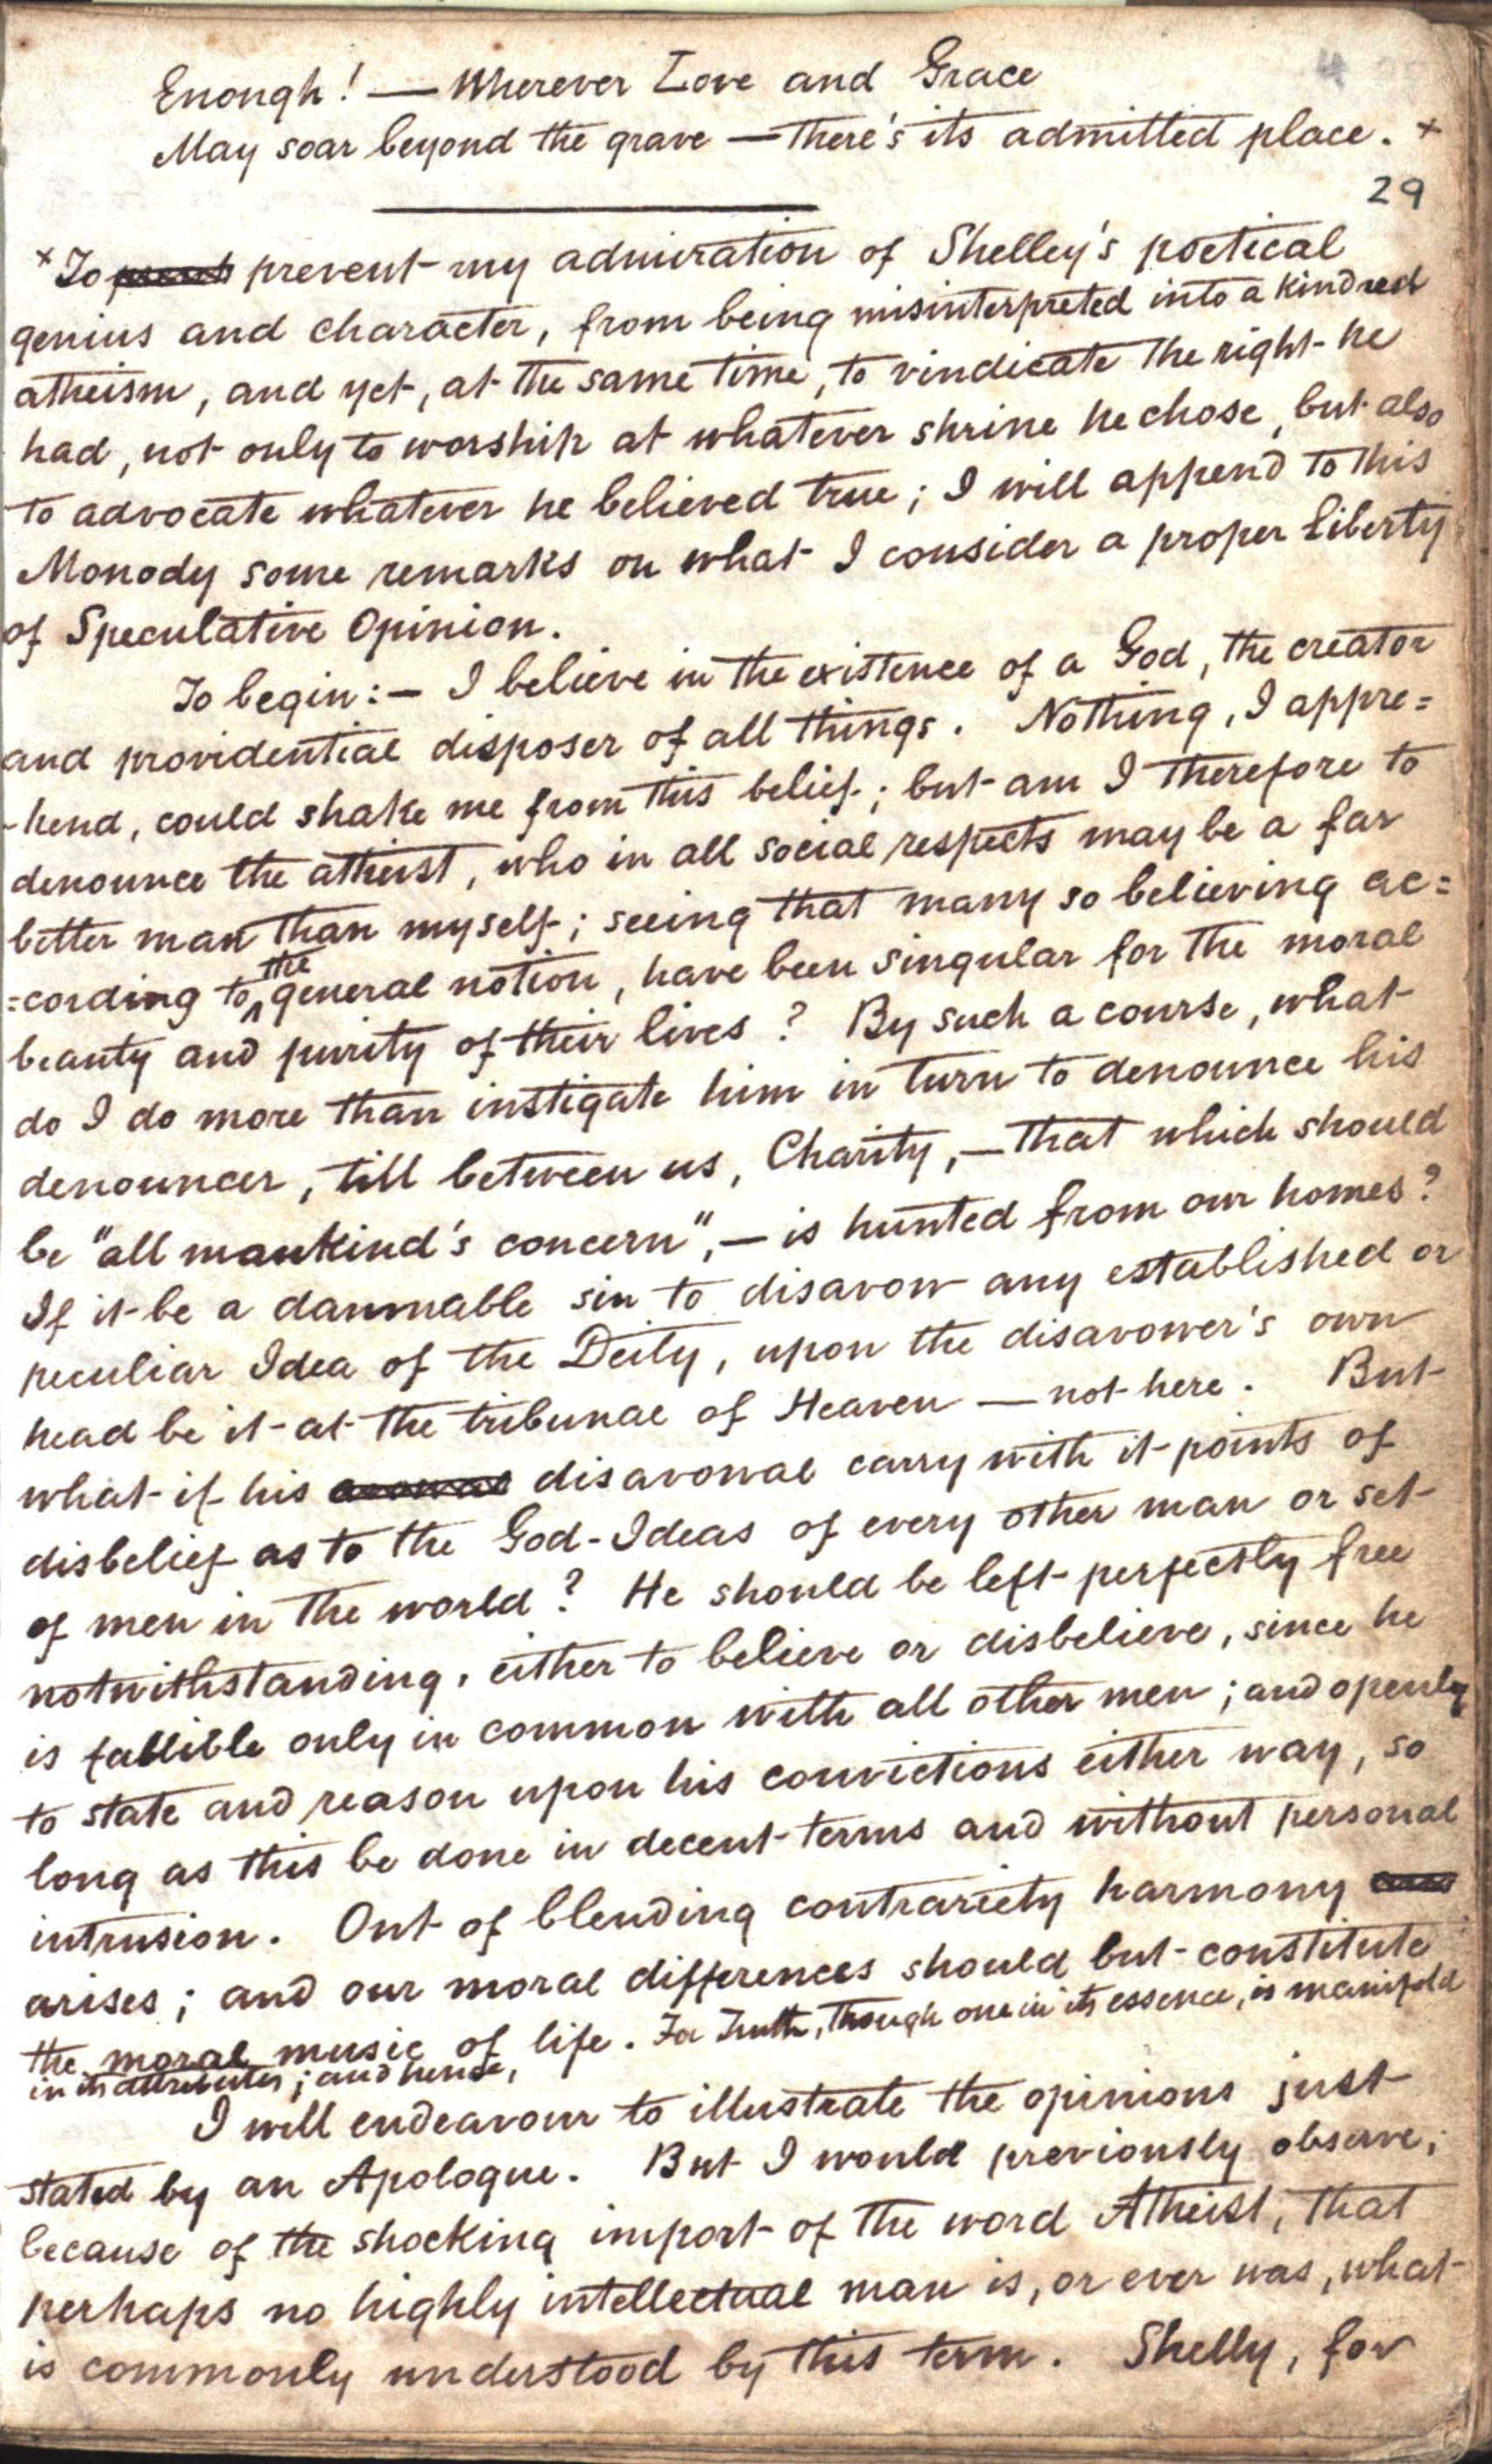 4
Enough! — Wherever Love and Grace
May soar beyond the grave — there's its admitted place. +
29
+ To prevent my admiration of Shelley's poetical
genius and character, from being misinterpreted into a kindred
atheism, and yet, at the same time, to vindicate the right he
had, not only to worship at whatever shrine he chose, but also
to advocate whatever he believed true; I will append to this
Monody some remarks on what I consider a proper liberty
of Speculative Opinion.
To begin:— I believe in the existence of a God, the creator
and providential disposer of all things. Nothing, I appre=
-hend, could shake me from this belief; but am I therefore to
denounce the atheist, who in all social respects may be a far
better man than myself; seeing that many so believing ac=
=cording to the general notion, have been singular for the moral
beauty and purity of their lives? By such a course, what
do I do more than instigate him in turn to denounce his
denouncer, till between us, Charity,— that which should
be "all mankind's concern",— is hunted from our homes?
If it be a damnable sin to disavow any established or
peculiar Idea of the Deity, upon the disavower's own
head be it at the tribunal of Heaven — not here. But
what if his avowal disavowal carry with it points of
disbelief as to the God-Ideas of every other man or set
of men in the world? He should be left perfectly free
notwithstanding, either to believe or disbelieve, since he
is fallible only in common with all other men; and openly
to state and reason upon his convictions either way, so
long as this be done in decent terms and without personal
intrusion. Out of blending contrariety harmony
arises; and our moral differences should but constitute
the moral music of life. For Truth, though one in its essence, is manifold
in its attributes; and hence,
I will endeavour to illustrate the opinions just
stated by an Apologue. But I would previously observe,
because of the shocking import of the word Atheist, that
perhaps no highly intellectual man is, or ever was, what
is commonly understood by this term. Shelly, for